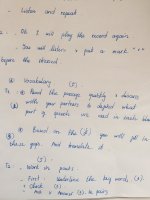 - Listen and repeat
- Ok I will play the record again
- You will listen & put a mark "'"
before the stressed
Vocabulary (5').
Read the passage quickly & discuss
with your partner to what
part of speech we need in each blank
Based on the you will fill in
these gaps. And translate it.
(5').
- Work in pairs
- First: Underline the key words
+ Check
Ask & Answer in pairs